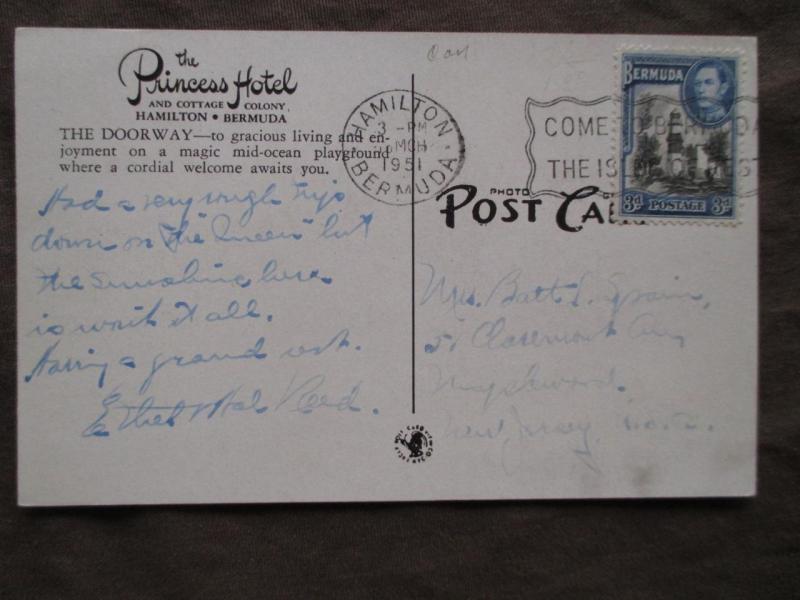 the
Princess Hotel
AND COTTAGE COLONY,
HAMILTON • BERMUDA
THE DOORWAY—to gracious living and en-
joyment on a magic mid-ocean playground
where a cordial welcome awaits you.
Had a very rough trip
down on "The Queen" but
the sunshine here
is worth it all.
Having a grand rest.
Ethel Reed.
HAMILTON
3 - PM
MCH
1951
BERMUDA
COME TO BERMUDA
THE IS
BERMUDA
3d POSTAGE 3d
PHOTO
POST CA
Mrs. Batt L. Spain,
51 Claremont Ave
Maplewood.
New Jersey.